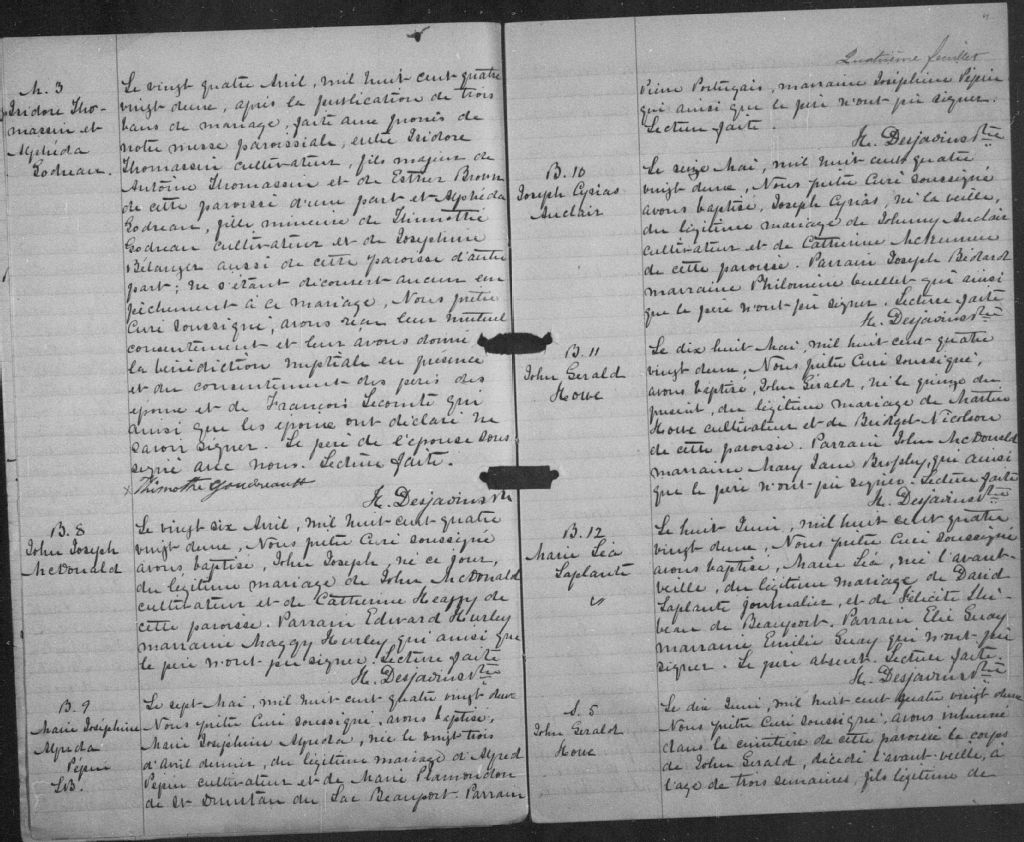 M. 3
Isidore Tho-
massin et
Alphéda
Godreau.
Le vingt quatre Avril, mil huit cent quatre
vingt douze, après la publication de trois
bans de mariage, faite aux prônes de
notre messe paroissiale, entre Isidore
Thomassin cultivateur, fils majeur de
Antoine Thomassin et de Esther Brown
de cette paroisse d'une part et Alphéda
Godreau, fille mineure de Thimothé
Godreau cultivateur et de Joséphine
Bélanger aussi de cette paroisse d'autre
part; ne s'étant découvert aucun em
pêchement à ce mariage, Nous prêtre
Curé soussigné, avons reçu leur mutuel
consentement et leur avons donné
la bénédiction nuptiale en présence
et du consentement des pères des
époux et de François Lecomte qui
ainsi que les époux ont déclaré ne
savoir signer. Le père de l'épouse sous
signé avec nous. Lecture faite.
x Thimothé Goudreault
H. Desjardins Ptre
B. 8
John Joseph
McDonald
Le vingt six Avril, mil huit cent quatre
vingt douze, Nous prêtre Curé soussigné
avons baptisé, John Joseph, né ce jour,
du légitime mariage de John McDonald
cultivateur et de Catherine Heappy de
cette paroisse. Parrain Edward Hurley
marraine Maggy Hurley, qui ainsi que
le père n'ont pu signer. Lecture faite
H. Desjardins Ptre
B. 9
Marie Joséphine
Alfreda
Pépin
LB.
Le sept Mai, mil huit cent quatre vingt douze
Nous prêtre Curé soussigné, avons baptisé,
Marie Joséphine Alfreda, née le vingt trois
d'avril dernier, du légitime mariage d'Alfred
Pépin cultivateur et de Marie Plamondon
de St Dunstan du Lac Beauport. Parrain
Quatrième feuillet
Pierre Portugais, marraine Joséphine Pépin
qui ainsi que le père n'ont pu signer.
Lecture faite.
H. Desjardins Ptre
B. 10
Joseph Cyrias
Auclair
Le seize Mai, mil huit cent quatre
vingt douze, Nous prêtre Curé soussigné
avons baptisé, Joseph Cyrias, né la veille,
du légitime mariage de Johnny Auclair
cultivateur et de Catherine
de cette paroisse. Parrain Joseph Bédard
marraine Philomène ouellet qui ainsi
que le père n'ont pu signer. Lecture faite
H. Desjardins Ptre
B. 11
John Gerald
Howe
Le dix huit Mai, mil huit cent quatre
vingt douze, Nous prêtre Curé soussigné,
avons baptisé, John Gérald, né le quinze du
présent, du légitime mariage de Martin
Howe cultivateur et de Bridget Nicolson
de cette paroisse. Parrain John McDonald
marraine Mary Jane Brophy, qui ainsi
que le père n'ont pu signer. Lecture faite
H. Desjardins Ptre
B. 12
Marie Léa
Laplante
Le huit Juin, mil huit cent quatre
vingt douze, Nous prêtre Curé soussigné
avons baptisé, Marie Léa, née l'avant-
veille, du légitime mariage de David
Laplante journalier, et de Félicité Thi-
beau de Beauport. Parrain Elie Guay
marraine Emilie Guay qui n'ont pu
signer. Le père absent. Lecture faite.
H. Desjardins Ptre
S. 5
John Gerald
Howe
Le dix Juin, mil huit cent quatre vingt douze
Nous prêtre Curé soussigné, avons inhumé
dans le cimetière de cette paroisse le corps
de John Gerald, décédé l'avant-veille, à
l'age de trois semaines, fils légitime de